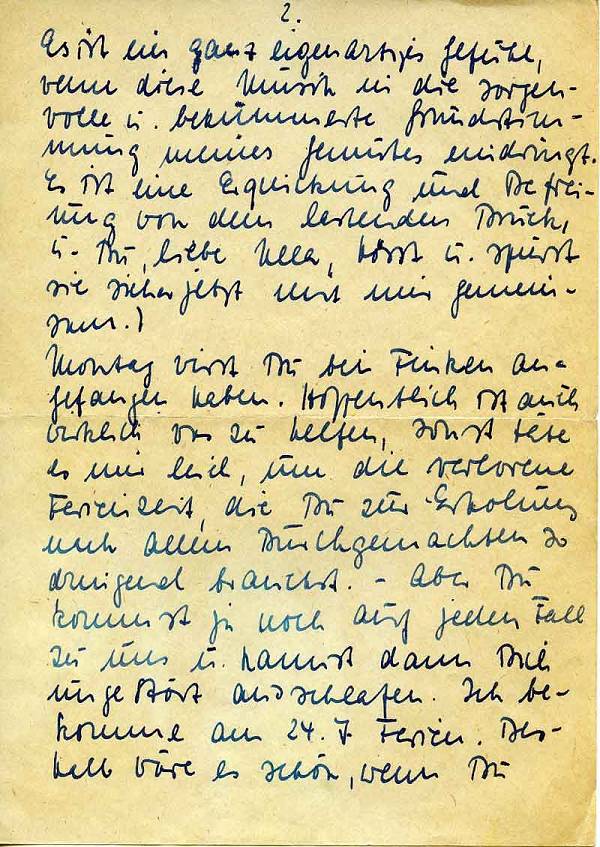 2.
Es ist ein ganz eigenartiges Gefühl,
wenn diese Musik in die sorgen-
volle u. bekümmerte Grundstim-
mung meines Gemütes eindringt.
Es ist eine Erquickung und Befrei-
ung von dem lastenden Druck,
u. Du, liebe Nella, hörst u. spürst
sie sicher jetzt mit mir gemein-
sam.)
Montag wirst Du bei Finken an-
gefangen haben. Hoffentlich ist auch
wirklich was zu helfen, sonst täte
es mir leid, um die verlorene
Ferienzeit, die Du zur Erholung
nach allem Durchgemachten so
dringend brauchst. - Aber Du
kommst ja noch auf jeden Fall
zu uns u. kannst dann Dich
ungestört ausschlafen. Ich be-
komme am 24. 7. Ferien. Des-
halb wäre es schön, wenn Du